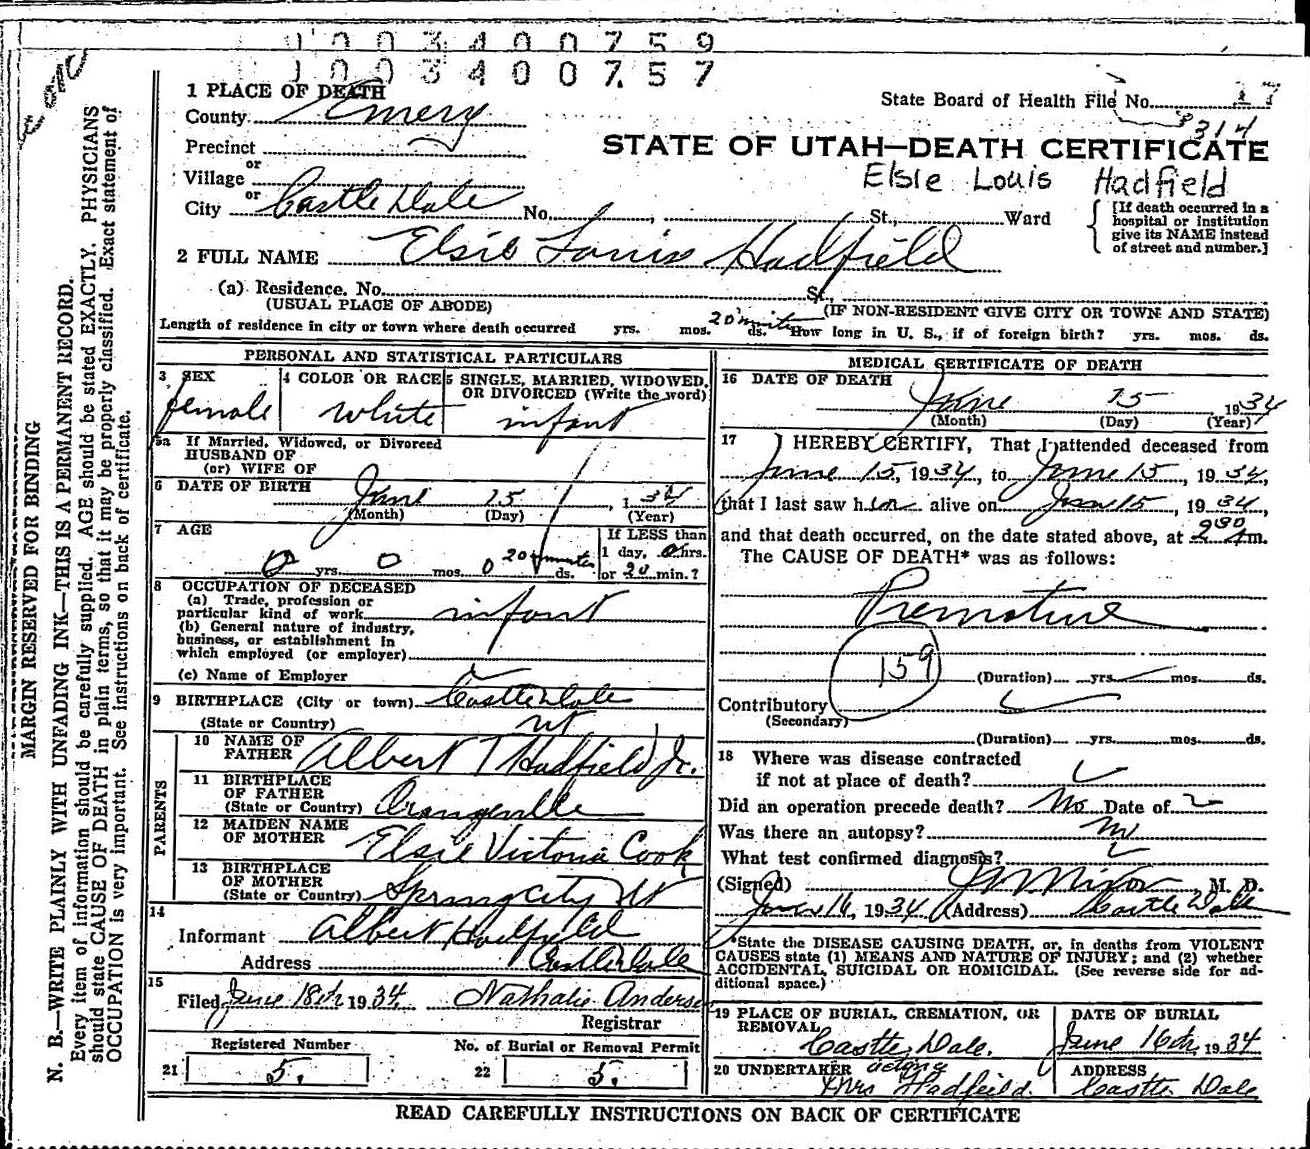 1003400759
1003400757
1 PLACE OF DEATH
State Board of Health File No. 17
County Emery
314
Precinct
STATE OF UTAH—DEATH CERTIFICATE
or
Village
Elsie Louis Hadfield
or
City Castle Dale No. , St., Ward
[If death occurred in a hospital or institution give its NAME instead of street and number.]
2 FULL NAME Elsie Louis Hadfield
(a) Residence. No. St.,
(USUAL PLACE OF ABODE) (IF NON-RESIDENT GIVE CITY OR TOWN AND STATE)
Length of residence in city or town where death occurred yrs. mos. 20 minutes ds. How long in U. S., if of foreign birth? yrs. mos. ds.
PERSONAL AND STATISTICAL PARTICULARS
3 SEX female
4 COLOR OR RACE white
5 SINGLE, MARRIED, WIDOWED, OR DIVORCED (Write the word) infant
5a If Married, Widowed, or Divorced
HUSBAND OF
(or) WIFE OF
6 DATE OF BIRTH June 15, 1934
(Month) (Day) (Year)
7 AGE 0 yrs. 0 mos. 0 20 minutes ds.
If LESS than 1 day, 0 hrs. or 20 min.?
8 OCCUPATION OF DECEASED
(a) Trade, profession or particular kind of work infant
(b) General nature of industry, business, or establishment in which employed (or employer)
(c) Name of Employer
9 BIRTHPLACE (City or town) Castle Dale
(State or Country) Ut
PARENTS
10 NAME OF FATHER Albert T Hadfield Jr.
11 BIRTHPLACE OF FATHER (State or Country) Orangeville
12 MAIDEN NAME OF MOTHER Elsie Victoria Cook
13 BIRTHPLACE OF MOTHER (State or Country) Spring City Ut
14
Informant Albert Hadfield
Address Castle Dale
15
Filed June 18th 1934 Nathalie Anderson
Registrar
Registered Number No. of Burial or Removal Permit
21 5. 22 5.
MEDICAL CERTIFICATE OF DEATH
16 DATE OF DEATH
June 15 1934
(Month) (Day) (Year)
17 I HEREBY CERTIFY, That I attended deceased from
June 15, 1934, to June 15, 1934,
that I last saw him alive on June 15, 1934,
and that death occurred, on the date stated above, at 230 Am.
The CAUSE OF DEATH* was as follows:
Premature
159
(Duration) yrs. mos. ds.
Contributory
(Secondary)
(Duration) yrs. mos. ds.
18 Where was disease contracted
if not at place of death?
Did an operation precede death? No Date of
Was there an autopsy? no
What test confirmed diagnosis?
(Signed) Nixon M. D.
June 16, 1934 (Address) Castle Dale
*State the DISEASE CAUSING DEATH, or, in deaths from VIOLENT
CAUSES state (1) MEANS AND NATURE OF INJURY; and (2) whether
ACCIDENTAL, SUICIDAL OR HOMICIDAL. (See reverse side for ad-
ditional space.)
19 PLACE OF BURIAL, CREMATION, OR REMOVAL Castle Dale.
DATE OF BURIAL June 16th, 1934
20 UNDERTAKER acting Mrs Hadfield.
ADDRESS Castle Dale
READ CAREFULLY INSTRUCTIONS ON BACK OF CERTIFICATE
MARGIN RESERVED FOR BINDING
N. B.—WRITE PLAINLY WITH UNFADING INK—THIS IS A PERMANENT RECORD.
Every item of information should be carefully supplied. AGE should be stated EXACTLY. PHYSICIANS
should state CAUSE OF DEATH in plain terms, so that it may be properly classified. Exact statement of
OCCUPATION is very important. See instructions on back of certificate.